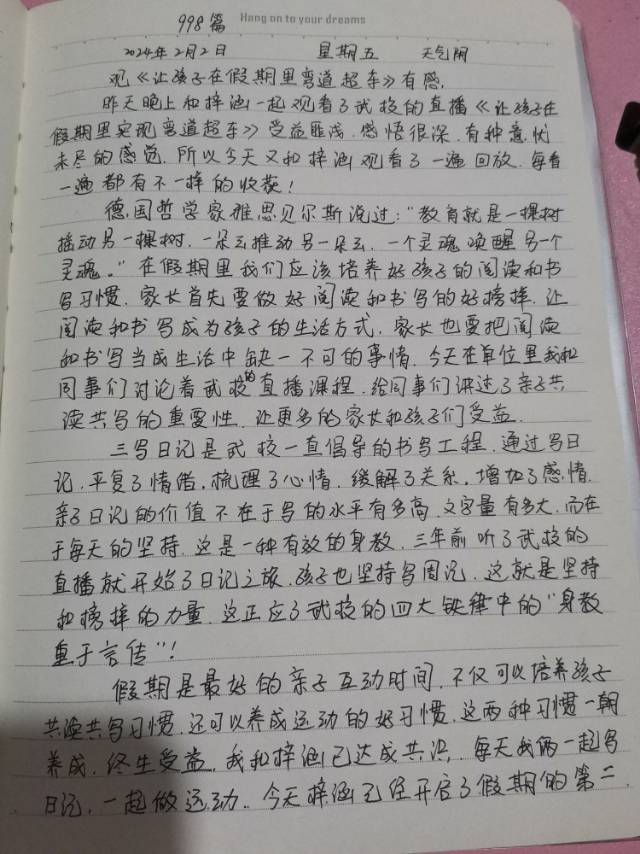 998篇 Hang on to your dreams
2024年2月2日 星期五 天气阴
观《让孩子在假期里弯道超车》有感.
昨天晚上和梓涵一起观看了武校的直播《让孩子在
假期里实现弯道超车》受益匪浅.感悟很深.有种意忧
未尽的感觉.所以今天又和梓涵观看了一遍回放.每看
一遍都有不一样的收获!
德国哲学家雅思贝尔斯说过:"教育就是一棵树
摇动另一棵树.一朵云推动另一朵云.一个灵魂唤醒另一个
灵魂。"在假期里我们应该培养好孩子的阅读和书
写习惯.家长首先要做好阅读和书写的好榜样.让
阅读和书写成为孩子的生活方式.家长也要把阅读
和书写当成生活中缺一不可的事情.今天在单位里我和
同事们讨论着武校的直播课程.给同事们讲述了亲子共
读共写的重要性.让更多的家长和孩子们受益.
三写日记是武校一直倡导的书写工程.通过写日
记.平复了情绪.梳理了心情.缓解了关系.增加了感情.
亲子日记的价值不在于写的水平有多高.文字量有多大.而在
于每天的坚持.这是一种有效的身教.三年前听了武校的
直播就开始了日记之旅.孩子也坚持写周记.这就是坚持
和榜样的力量.这正应了武校的四大铁律中的"身教
重于言传"!
假期是最好的亲子互动时间.不仅可以培养孩子
共读共写习惯.还可以养成运动的好习惯.这两种习惯一朝
养成.终生受益.我和梓涵已达成共识,每天我俩一起写
日记.一起做运动.今天梓涵已经开启了假期的第二